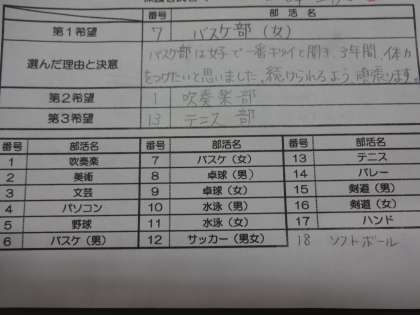 番号 部活名
第1希望 7 バスケ部(女)
選んだ理由と決意 バスケ部は女子で一番キツイと聞き、3年間、体力
をつけたいと思いました。続けられるよう頑張ります。
第2希望 1 吹奏楽部
第3希望 13 テニス部
番号 部活名 番号 部活名 番号 部活名
1 吹奏楽 7 バスケ(女) 13 テニス
2 美術 8 卓球(男) 14 バレー
3 文芸 9 卓球(女) 15 剣道(男)
4 パソコン 10 水泳(男) 16 剣道(女)
5 野球 11 水泳(女) 17 ハンド
6 バスケ(男) 12 サッカー(男女) 18 ソフトボール